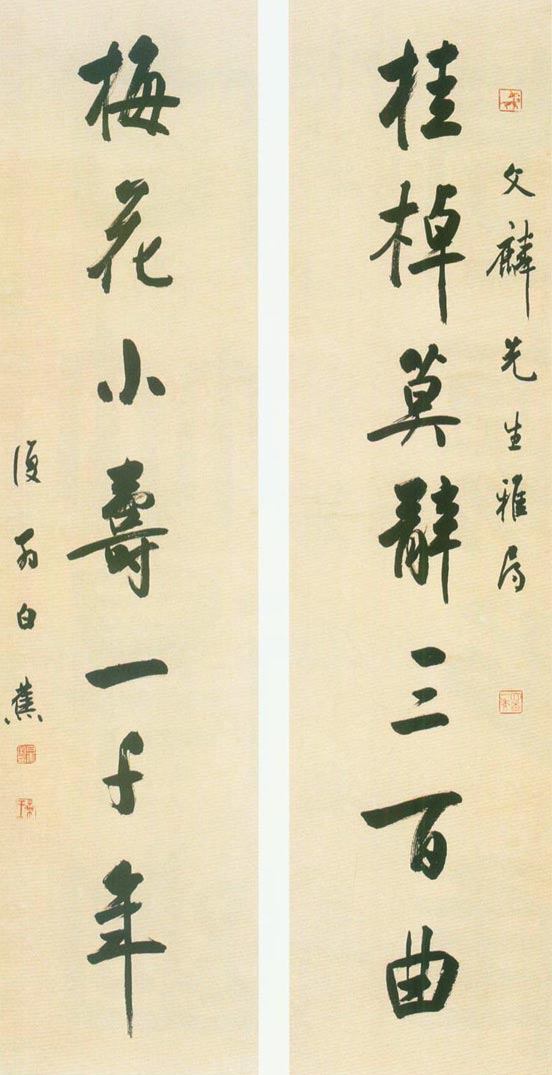 文麟先生雅属
桂棹莫辞三百曲
梅花小壽一千年
復翁白蕉